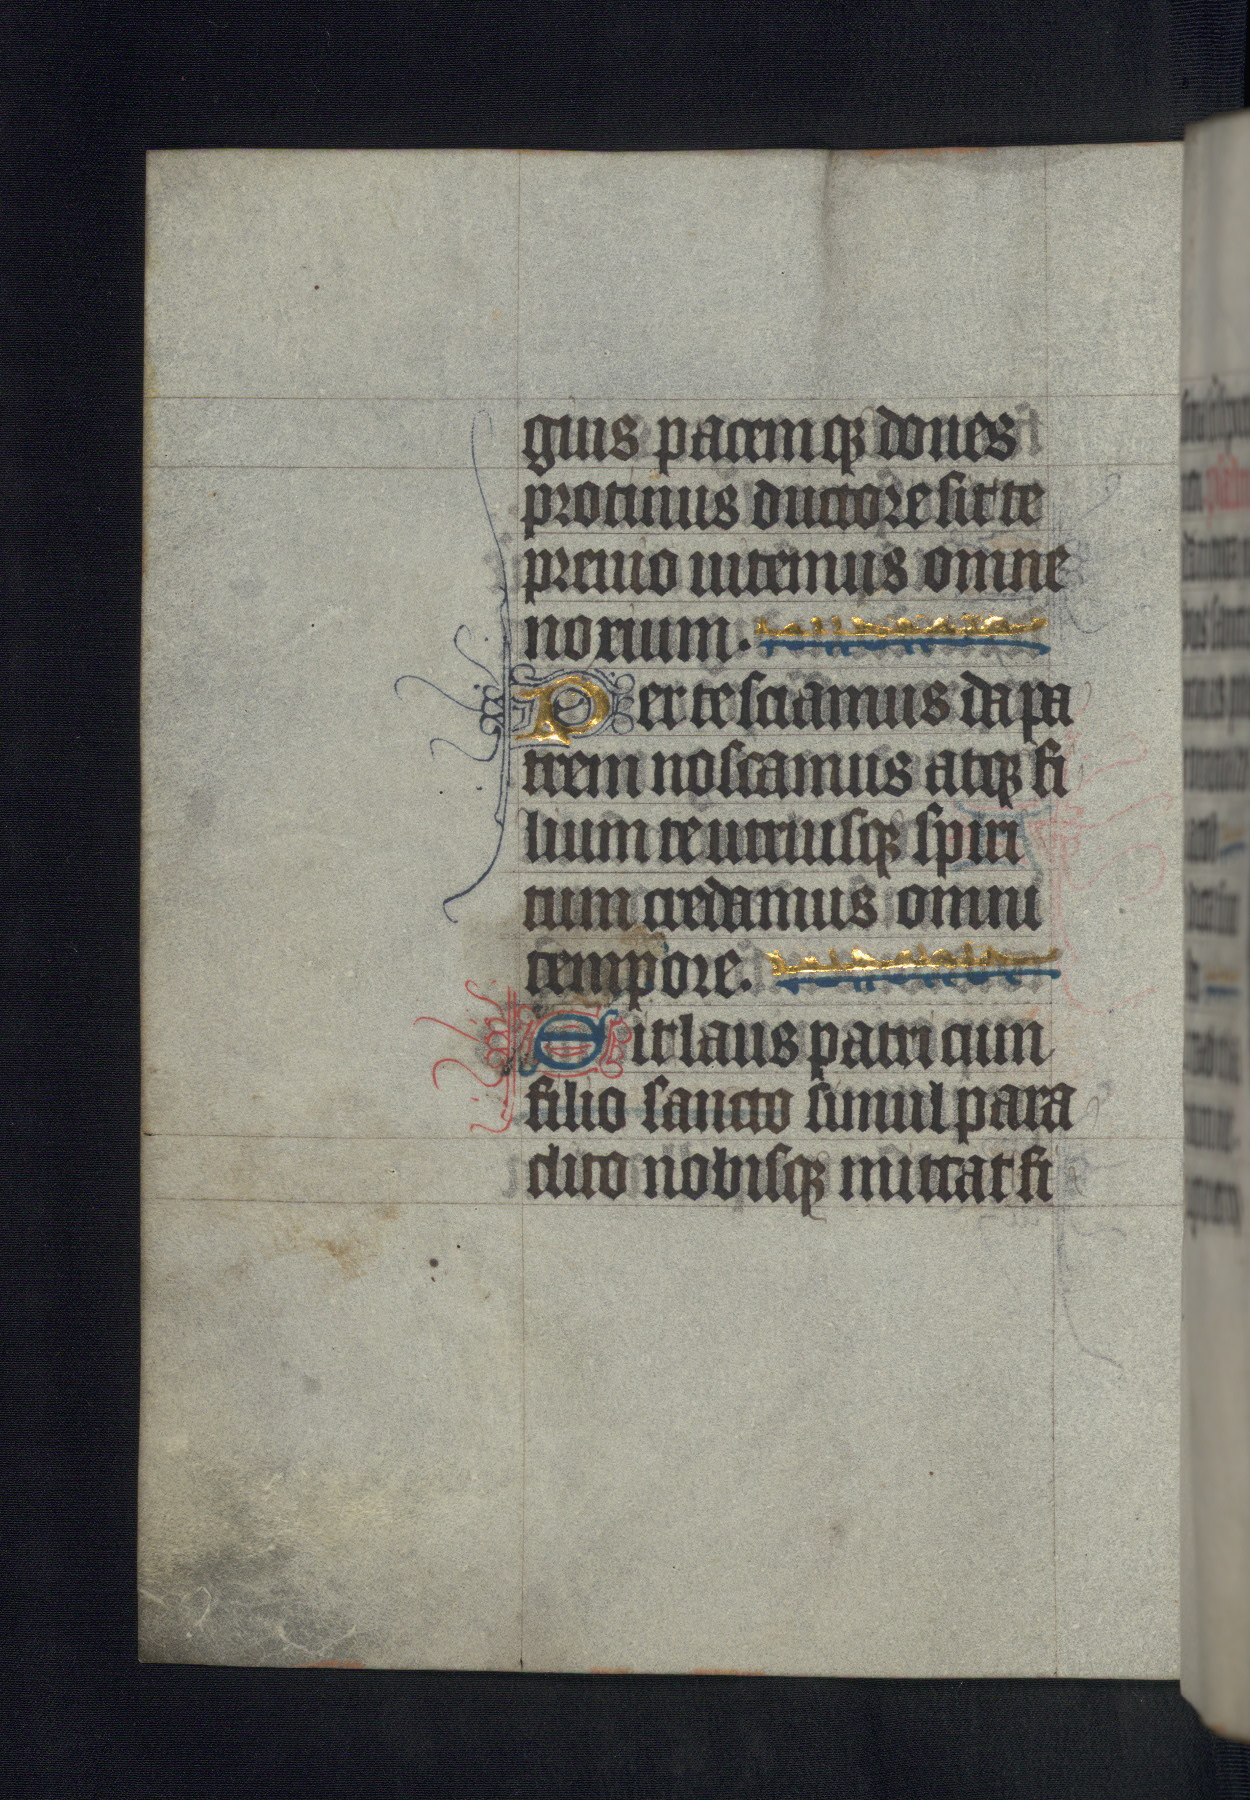 guis pacemqꝫ dones
protinus ductore sic te
preuio uitemus omne
noxium.
Per te sciamus da pa
trem noscamus atqꝫ fi
lium te utriusqꝫ spiri
tum credamus omni
tempore.
Sit laus patri cum
filio sancto simul para
clito nobisqꝫ mittat fi